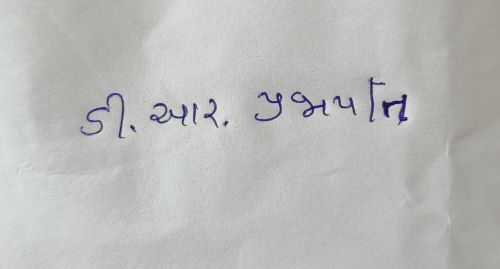 ડી. આર. પ્રજાપતિ